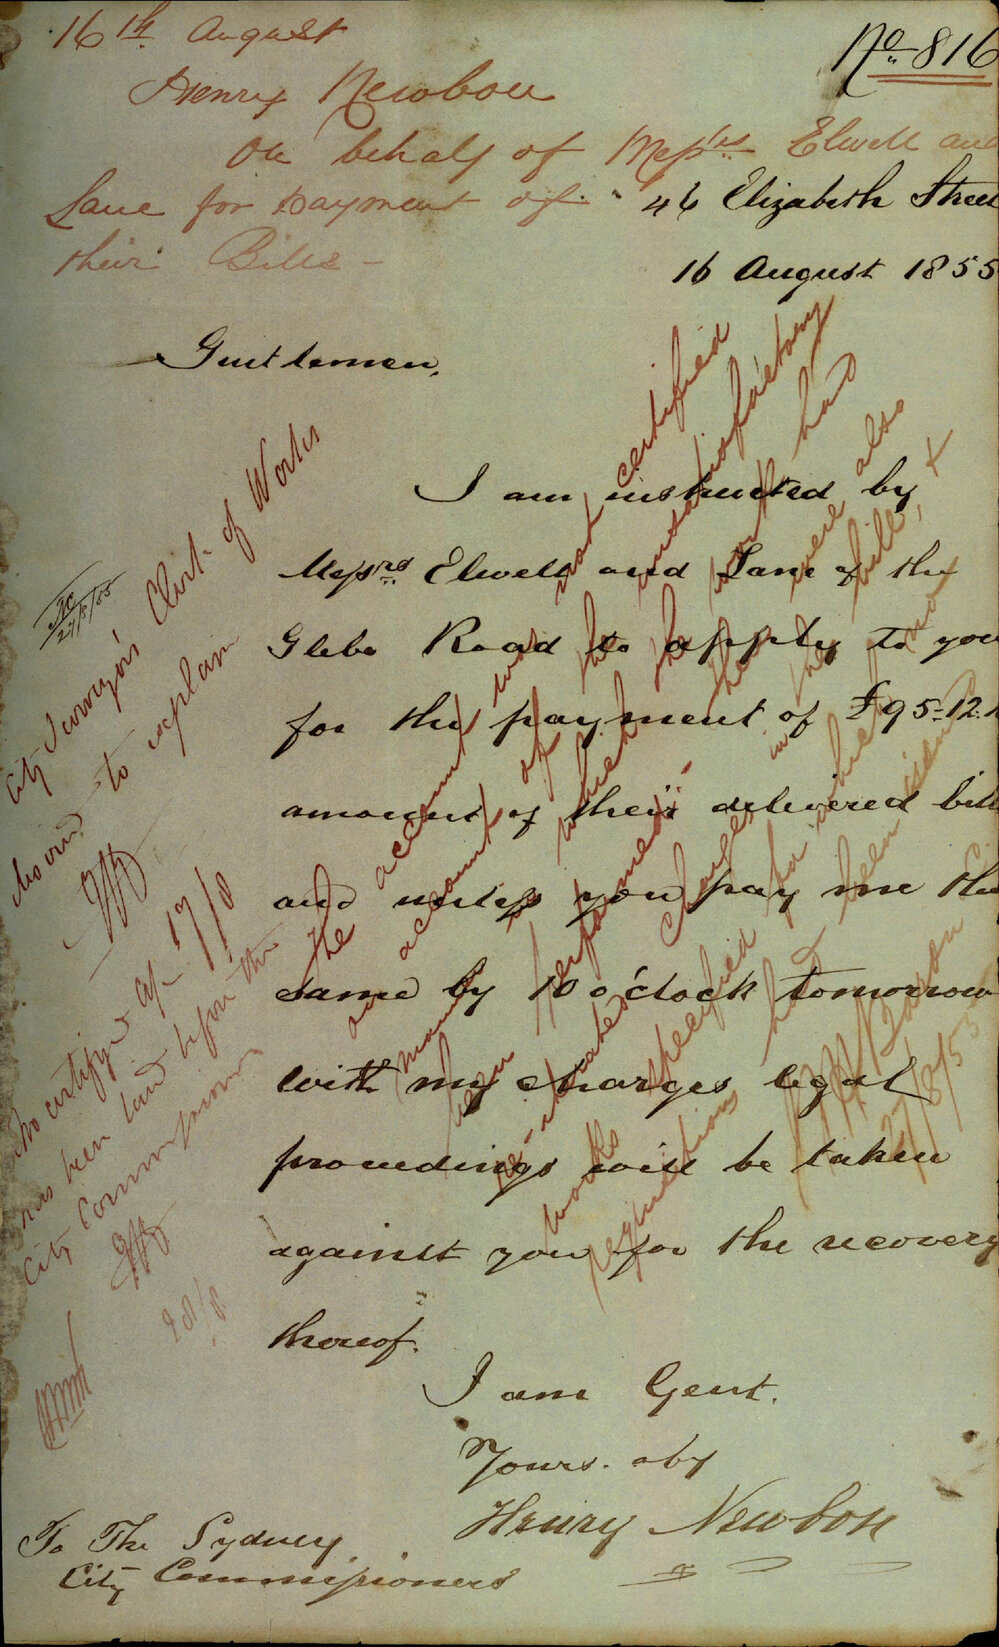 16th August
No. 816
Henry Newbou
On behalf of Messrs Elwell and
Lane for payment of
their Bills -
46 Elizabeth Street
16 August 1855
Gentlemen,
I am instructed by
Messrs Elwell and Lane of the
Glebe Road to apply to you
for the payment of £95-12.
amount of their delivered bill
and unless you pay me the
same by 10 o'clock tomorrow
with my charges legal
proceedings will be taken
against you for the recovery
thereof.
I am Gent.
Yours. oby
Henry Newbon
To The Sydney
City Commissioners
27/8/55
City Surveyor's Clerk of Works
to explain
17/8
has been laid before the
City Commissioners
20/8
The account was not certified
on account of the unsatisfactory
manner in which the work had
been performed. There were also
charges in the bill, &
works specified for which no
requisitions had been issued
27/8/55